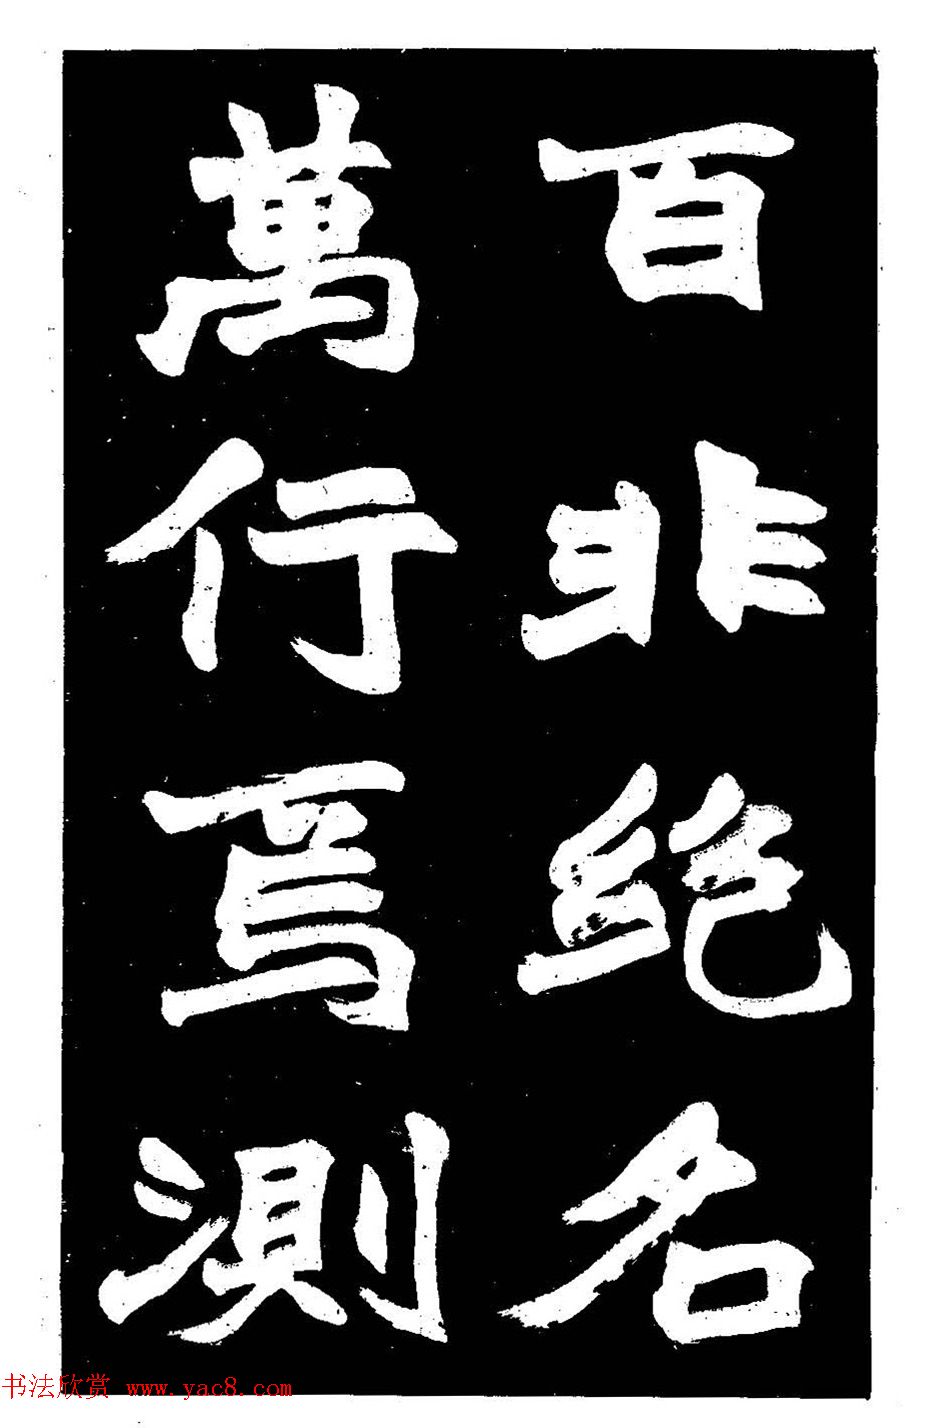 百非絶名
萬行焉測
书法欣赏 www.yac8.com